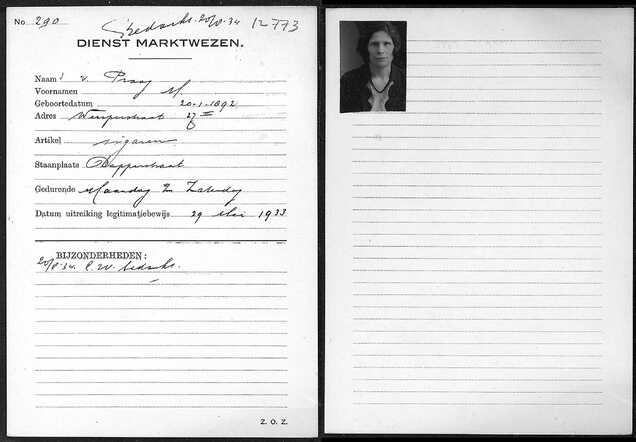 No 290 20/8·34 12773
DIENST MARKTWEZEN.
Naam v. Praag
Voornamen M.
Geboortedatum 20-1-1892
Adres 27 II
Artikel sigaren
Staanplaats Dapperstraat
Gedurende Maandag Zaterdag
Datum uitreiking legitimatiebewijs 29 Mei 1933
BIJZONDERHEDEN:
20/8·34.
Z. O. Z.